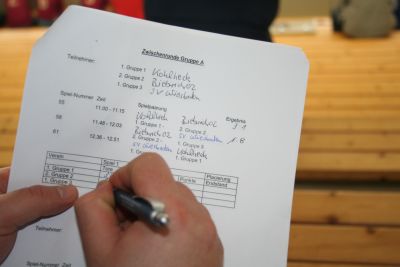 Zwischenrunde Gruppe A
Teilnehmer:
1. Gruppe 1 Kohlheck
2. Gruppe 2 Biebrich 02
1. Gruppe 3 SV Wiesbaden
Spiel-Nummer Zeit Spielpaarung Ergebnis
55 11.00 - 11.15 Kohlheck Biebrich 02
1. Gruppe 1 - 2. Gruppe 2
58 11.48 - 12.03 Biebrich 02 SV Wiesbaden
2. Gruppe 2 - 1. Gruppe 3
61 12.36 - 12.51 SV Wiesbaden Kohlheck
1. Gruppe 3 1. Gruppe 1
Verein Spiel 1 Punkte Platzierung
Tore Endstand
1. Gruppe 1
2. Gruppe 2
1. Gruppe 3
Teilnehmer:
Spiel-Nummer Zeit